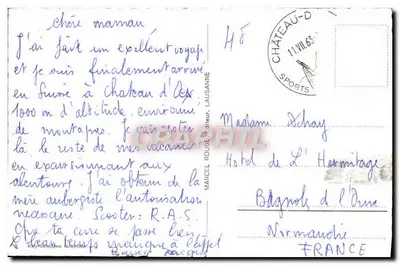 chère maman
J'ai fait un excellent voyage
et je suis finalement arrivé
en Suisse à Chateau d'Oex
1000 m d'altitude, environné
de montagnes. Je vais rester
là le reste de mes vacances
en excursionnant aux
alentours. J'ai obtenu de la
mère aubergiste l'autorisation
Scooter. R.A.S.
Que ta cure se passe bien
Le beau temps manque à l'appel
Baisers
MARCEL ROUGE, LAUSANNE
48
CHÂTEAU-D
11.VIII.63
SPORTS
Madame
Hotel de L'Hermitage
Bagnole de l'Orne
Normandie
FRANCE